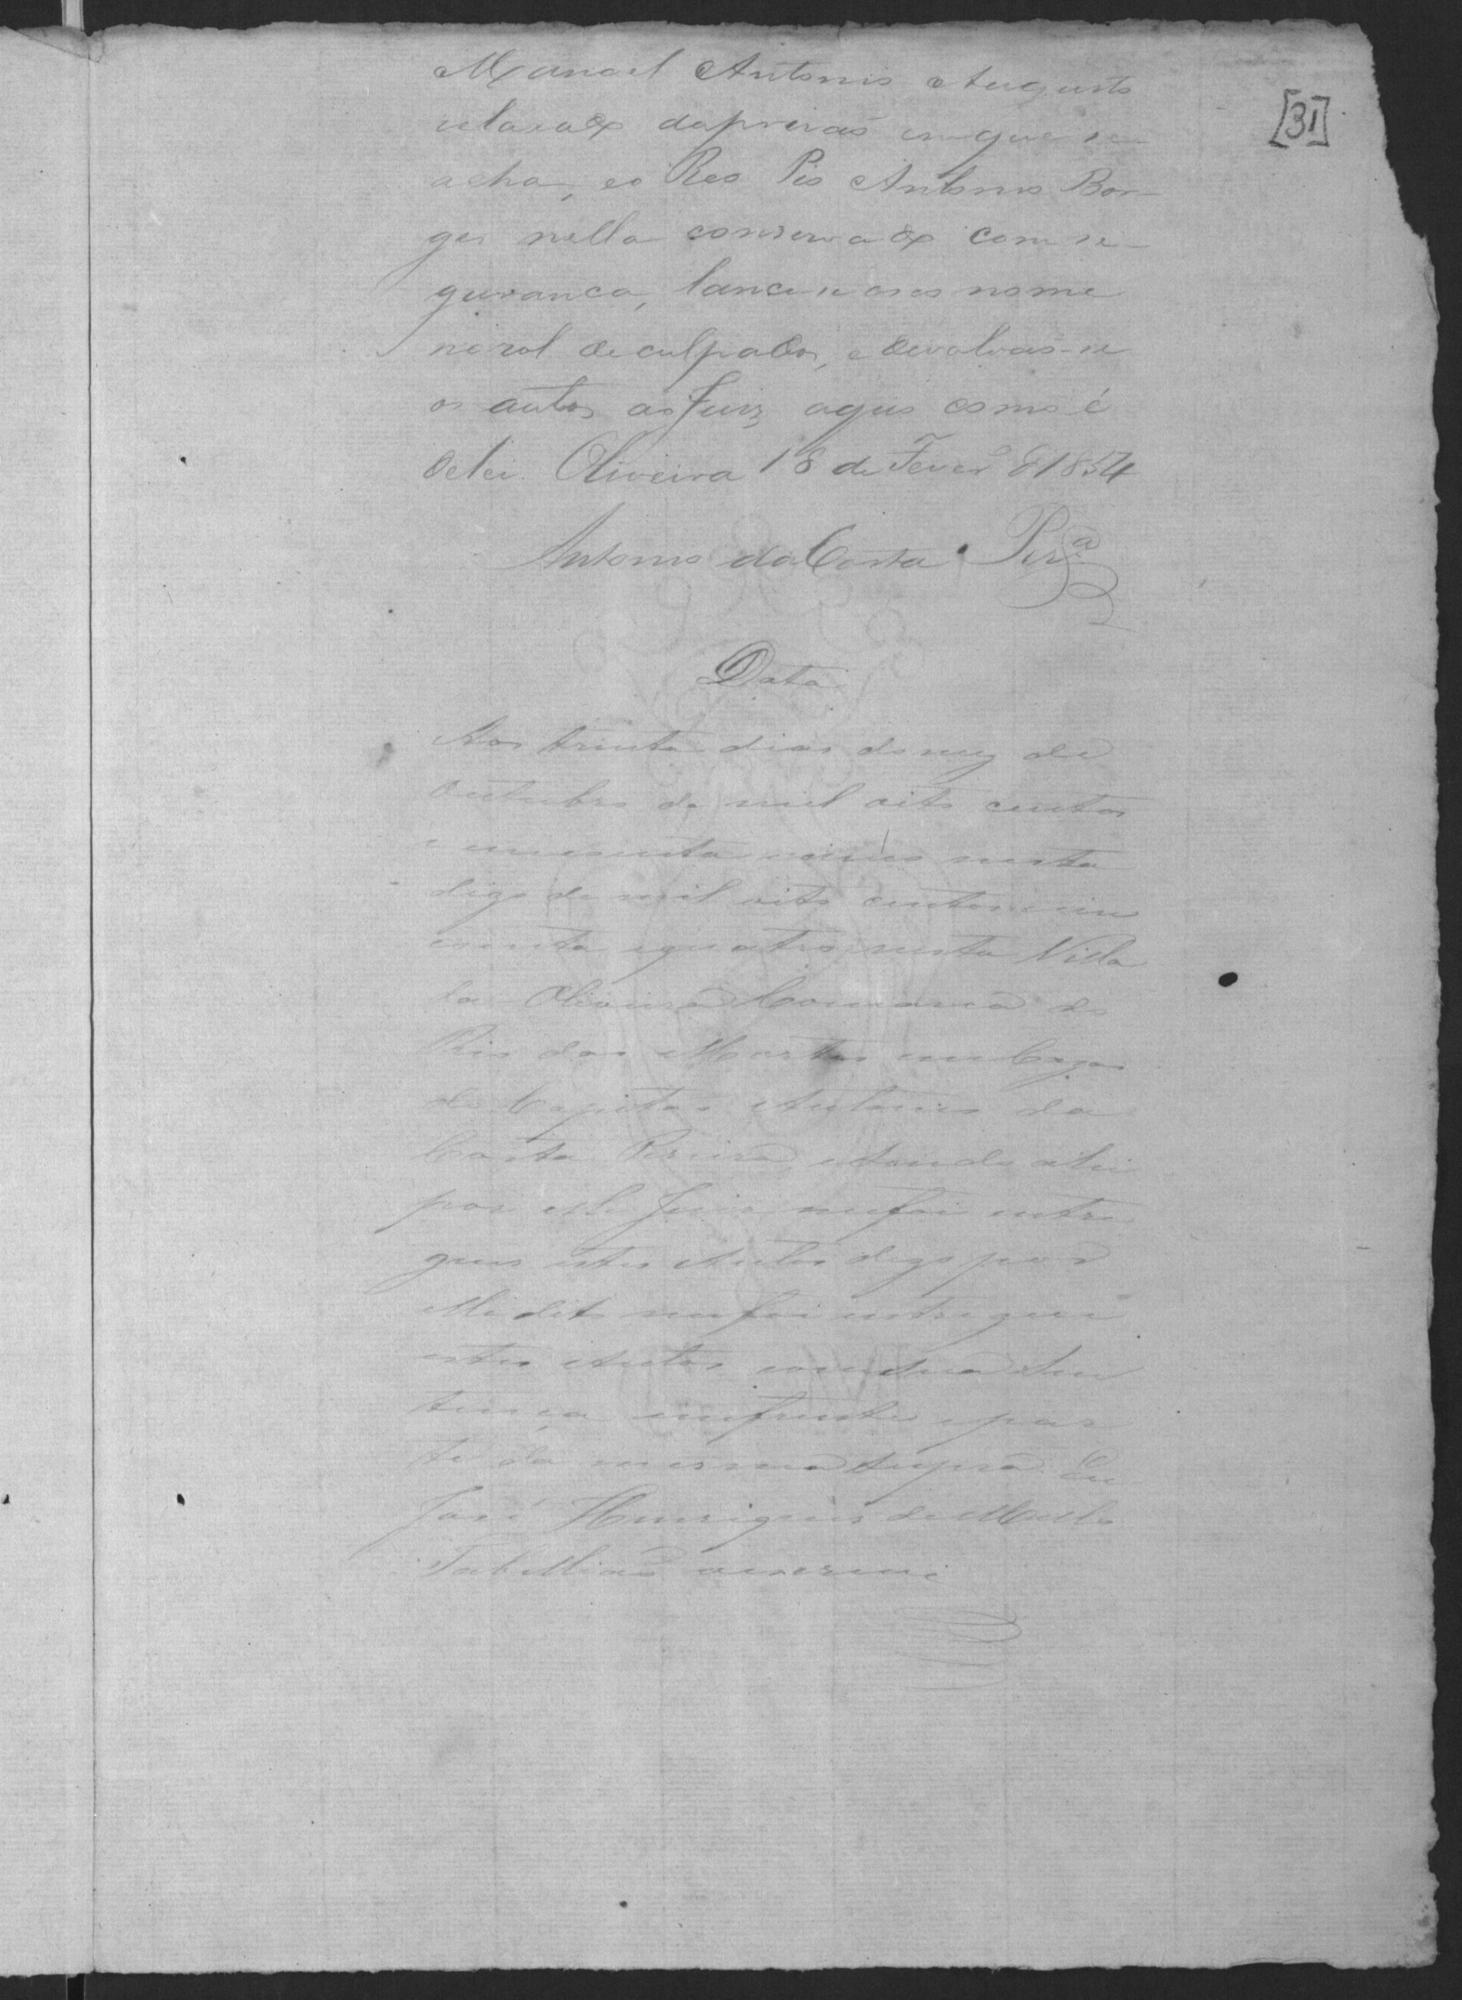 [31]
Manoel Antonio Augusto
relaxado da prizaõ em que se
acha, e o Reo Pio Antonio Bor-
ges nella conservado com se-
gurança, lance-se os seos nome
no rol de culpados, e devolvaõ-se
os autos ao Juiz aquo como é
de lei. Oliveira 18 de Fever.º d 1854
Antonio da Costa Per.ª
Data
Aos trinta dias do mez de
Outubro de mil oito centos
e cincoenta nesta
digo de mil oito centos cin
coenta e quatro nesta Villa
da Oliveira Comarca do
Rio das Mortes em Cazas
do Capitão Antonio da
Costa Pereira, e sendo ahi
por elle Juiz me foi entre
gues estes Autos digo por
elle dito me foi entregue
estes Autos com sua Sen
tença em frente e par
te da mesma supra. Eu
José Henriques de Mello
Tabellião escrevi